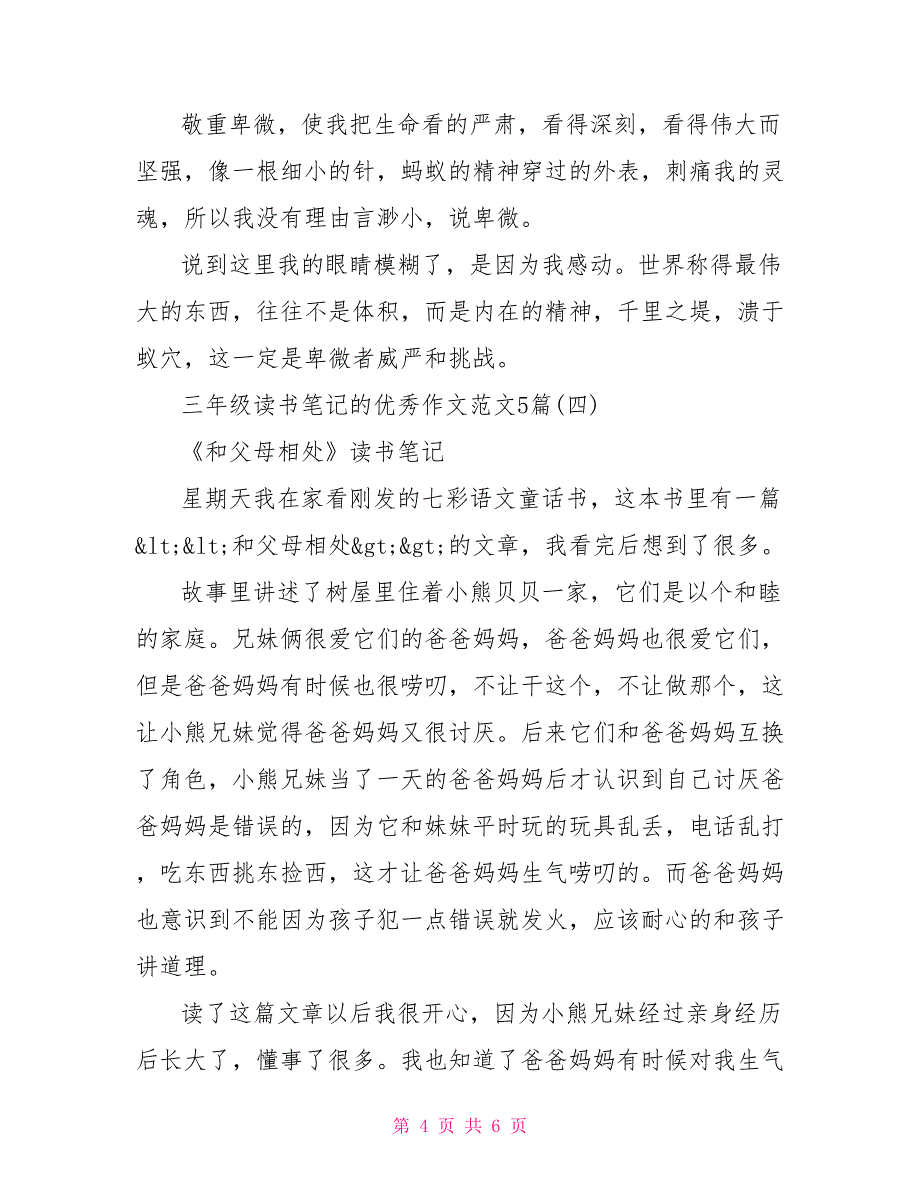 敬重卑微，使我把生命看的严肃，看得深刻，看得伟大而
坚强，像一根细小的针，蚂蚁的精神穿过的外表，刺痛我的灵
魂，所以我没有理由言渺小，说卑微。
说到这里我的眼睛模糊了，是因为我感动。世界称得最伟
大的东西，往往不是体积，而是内在的精神，千里之堤，溃于
蚁穴，这一定是卑微者威严和挑战。
三年级读书笔记的优秀作文范文5篇(四)
《和父母相处》读书笔记
星期天我在家看刚发的七彩语文童话书，这本书里有一篇
&lt;&lt;和父母相处&gt;&gt;的文章，我看完后想到了很多。
故事里讲述了树屋里住着小熊贝贝一家，它们是以个和睦
的家庭。兄妹俩很爱它们的爸爸妈妈，爸爸妈妈也很爱它们，
但是爸爸妈妈有时候也很唠叨，不让干这个，不让做那个，这
让小熊兄妹觉得爸爸妈妈又很讨厌。后来它们和爸爸妈妈互换
了角色，小熊兄妹当了一天的爸爸妈妈后才认识到自己讨厌爸
爸妈妈是错误的，因为它和妹妹平时玩的玩具乱丢，电话乱打
，吃东西挑东捡西，这才让爸爸妈妈生气唠叨的。而爸爸妈妈
也意识到不能因为孩子犯一点错误就发火，应该耐心的和孩子
讲道理。
读了这篇文章以后我很开心，因为小熊兄妹经过亲身经历
后长大了，懂事了很多。我也知道了爸爸妈妈有时候对我生气
第 4 页 共 6 页